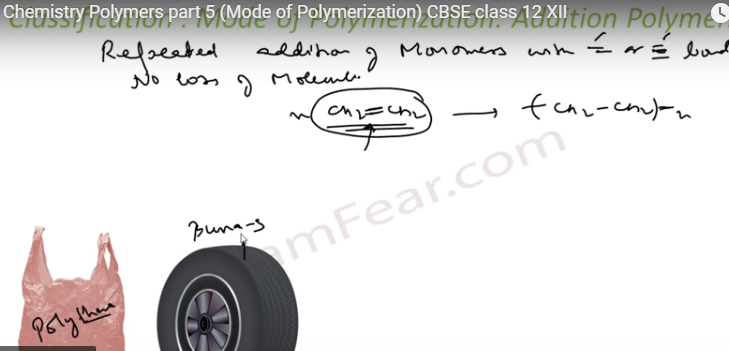 Chemistry Polymers part 5 (Mode of Polymerization) CBSE class 12 XII
Classification : Mode of Polymerization: Addition Polymer
Repeated addition of Monomers with = or ≡ bond
No loss of Molecule.
n(CH2=CH2) → (CH2-CH2)-n
amFear.com
Buna-S
Polythene